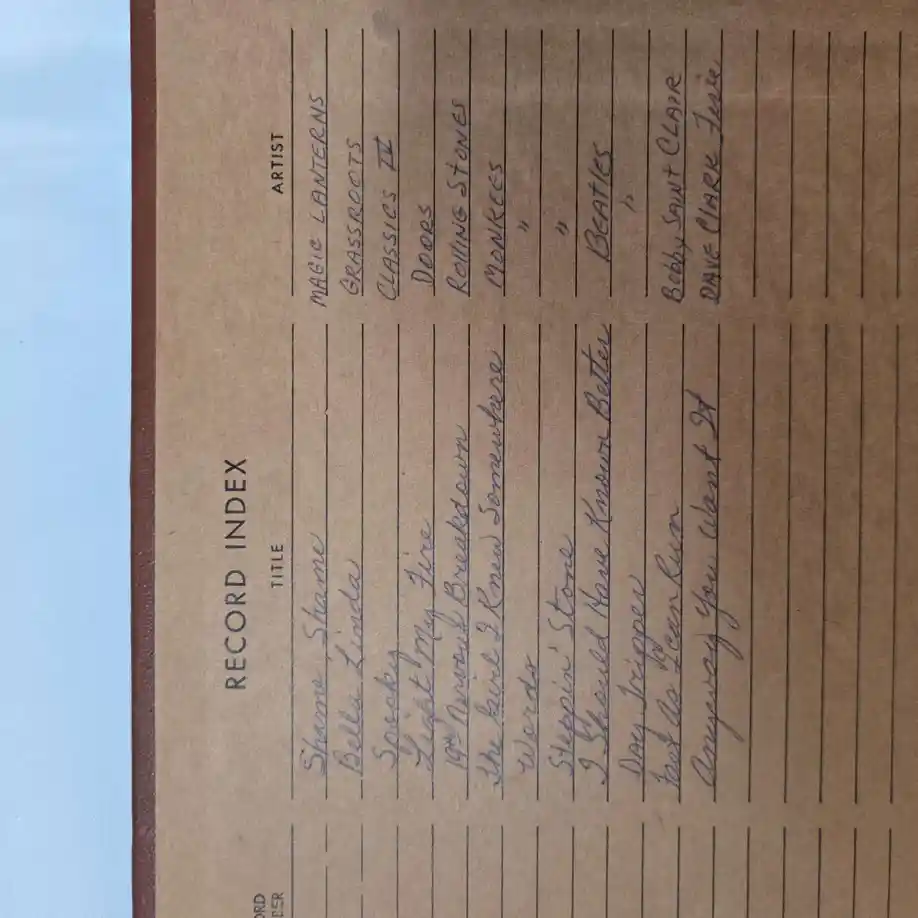 RECORD INDEX
TITLE ARTIST
Shame Shame MAGIC LANTERNS
Bella Linda GRASSROOTS
Spooky CLASSICS IV
Light My Fire DOORS
19th Nervous Breakdown ROLLING STONES
The Girl I Knew Somewhere MONKEES
Words "
Steppin' Stone "
I Should Have Known Better BEATLES
Day Tripper "
Fast As I Can Run Bobby SAINT CLAIR
Anyway You Want It DAVE CLARK Five